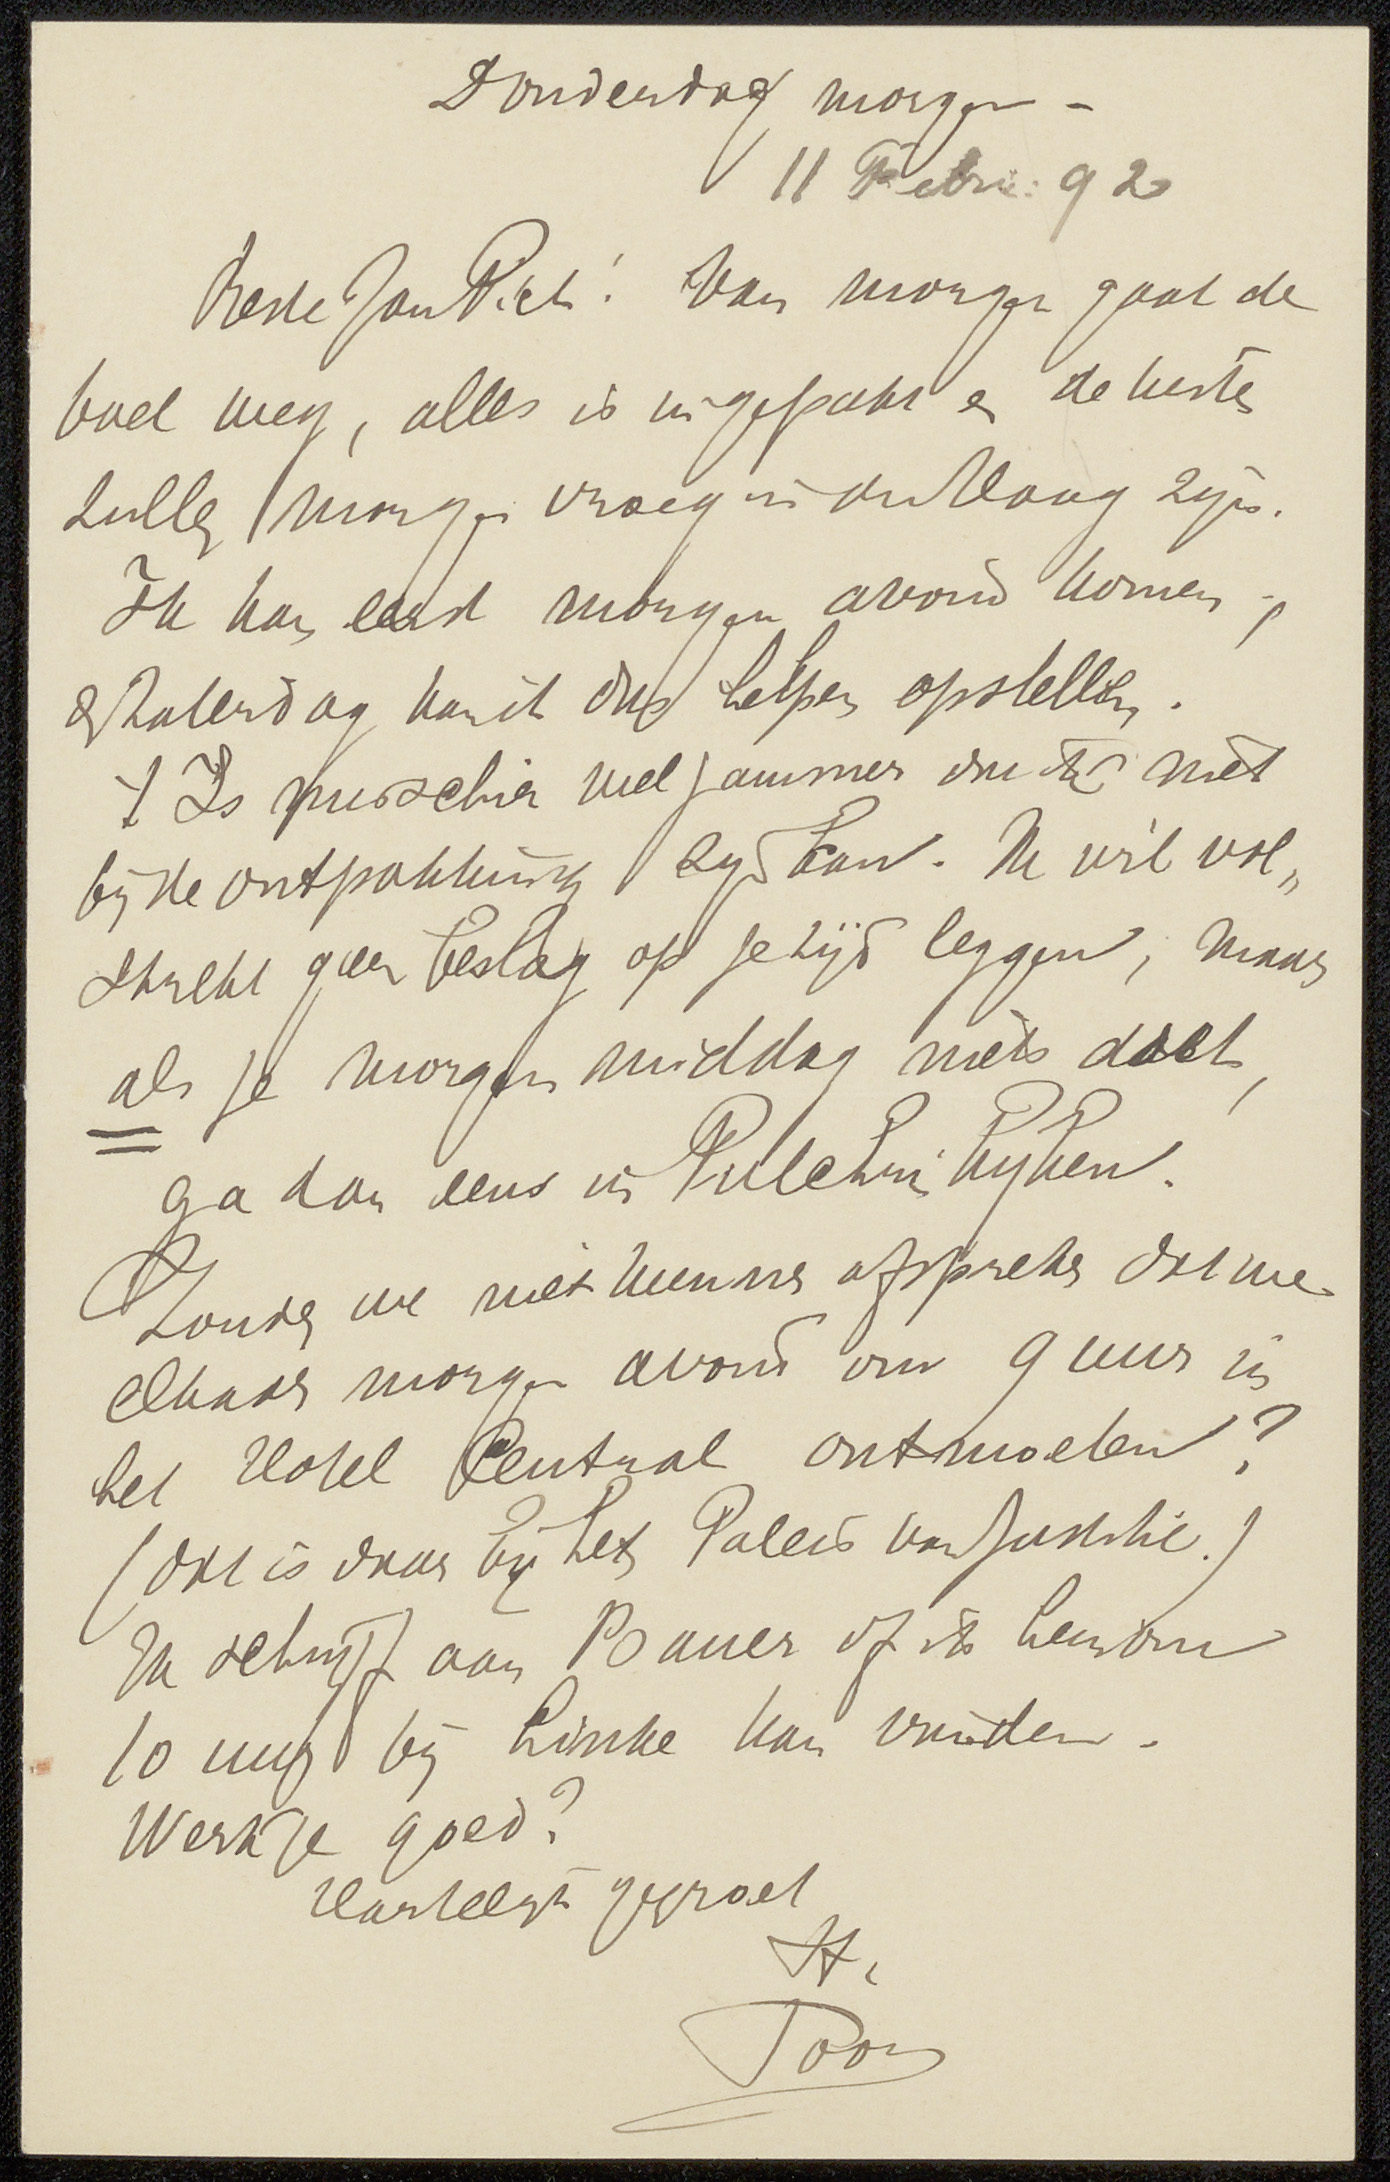 Donderdag morgen -
11 Febr: 92
Beste Jan Piet! Van morgen gaat de
boel weg, alles is ingepakt en de kisten
zullen morgen vroeg in den Haag zijn.
Ik kan eerst morgen avond komen,
en Zaterdag kan ik dus helpen opstellen.
't Is misschien wel jammer dat ik niet
bij de ontpakking zijn kan. Ik wil vol„
strekt geen beslag op je tijd leggen, maar
als je morgen middag niets doet,
ga dan eens in Pulchri kijken.
Zouden we niet kunnen afspreken dat we
elkaar morgen avond om 9 uur in
het Hotel Central ontmoeten?
(dat is daar bij het Paleis van Justitie.)
Ik schrijf aan Bauer of ik hem om
10 uur bij Linke kan vinden.
Werk je goed?
Hartelijk gegroet
tt.
Toon